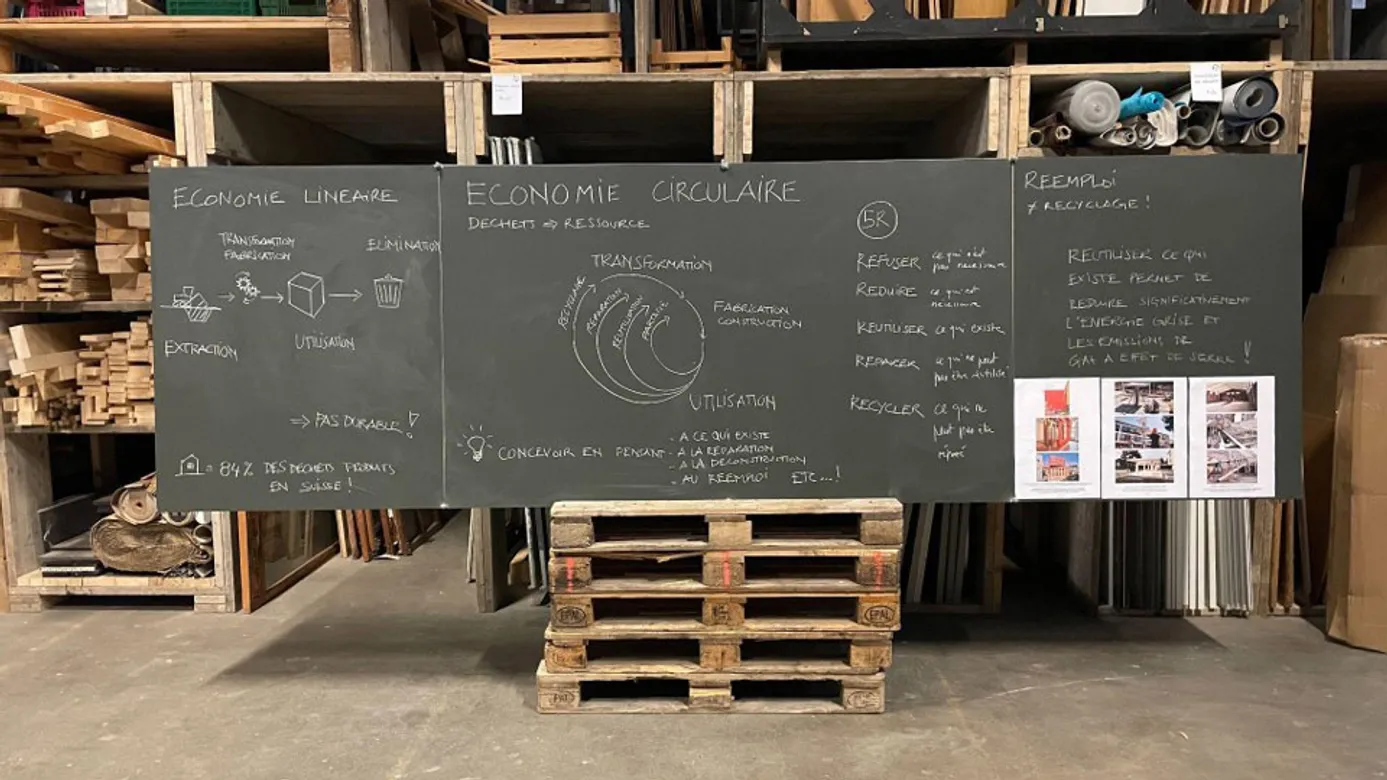 ECONOMIE LINEAIRE
TRANSFORMATION
FABRICATION
ELIMINATION
EXTRACTION
UTILISATION
⇒ PAS DURABLE !
= 84% DES DECHETS PRODUITS
EN SUISSE !
ECONOMIE CIRCULAIRE
DECHETS ⇒ RESSOURCE
TRANSFORMATION
RECYCLAGE
REPARATION
REUTILISATION
PARTAGE
FABRICATION
CONSTRUCTION
UTILISATION
CONCEVOIR EN PENSANT
- A CE QUI EXISTE
- A LA REPARATION
- A LA DECONSTRUCTION
- AU REEMPLOI ETC...!
5R
REFUSER ce qui n'est
pas necessaire
REDUIRE ce qui est
necessaire
REUTILISER ce qui existe
REPARER ce qui ne peut
pas être réutilisé
RECYCLER ce qui ne
peut pas être
réparé
REEMPLOI
≠ RECYCLAGE !
REUTILISER CE QUI
EXISTE PERMET DE
REDUIRE SIGNIFICATIVEMENT
L'ENERGIE GRISE ET
LES EMISSIONS DE
GAZ A EFFET DE SERRE !
EPAL
EPAL